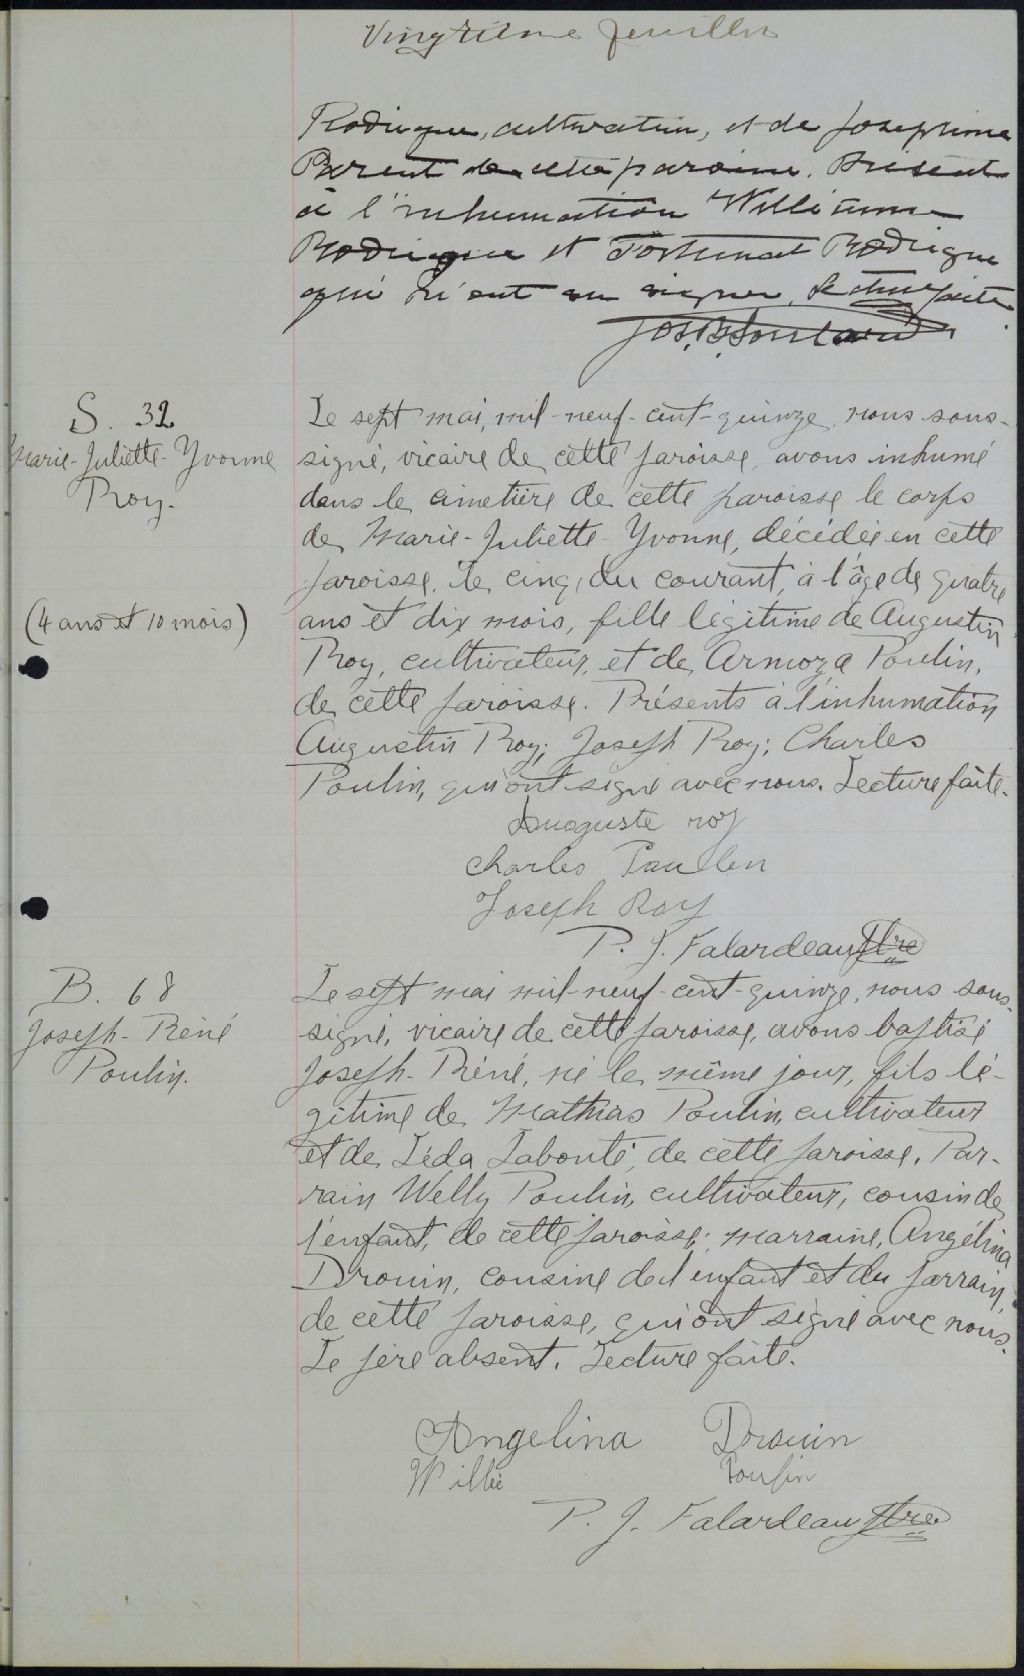 Vingtième feuillet
Rodrigue, cultivateur, et de Josephine
Parent de cette paroisse. Présents
à l'inhumation Williamme
Rodrigue et Fortunat Rodrigue
qui n'ont su signer. Lecture faite.
Jos. B. Soulard
S. 32
Marie-Juliette-Yvonne
Roy.
(4 ans et 10 mois)
Le sept mai, mil-neuf-cent-quinze, nous sous-
signé, vicaire de cette paroisse, avons inhumé
dans le cimetière de cette paroisse le corps
de Marie-Juliette-Yvonne, décédée en cette
paroisse, le cinq, du courant, à l'âge de quatre
ans et dix mois, fille légitime de Augustin
Roy, cultivateur, et de Armoza Poulin,
de cette paroisse. Présents à l'inhumation
Augustin Roy; Joseph Roy; Charles
Poulin, qui ont signé avec nous. Lecture faite.
Auguste roy
Charles Paullen
Joseph Roy
P. J. Falardeau Ptre
B. 68
Joseph-Réné
Poulin.
Le sept mai mil-neuf-cent-quinze, nous sous-
signé, vicaire de cette paroisse, avons baptisé
Joseph-Réné, né le même jour, fils lé-
gitime de Mathias Poulin, cultivateur
et de Léda Labonté, de cette paroisse. Par-
rain Welly Poulin, cultivateur, cousin de
l'enfant, de cette paroisse; marraine, Angélina
Drouin, cousine de l'enfant et du parrain,
de cette paroisse, qui ont signé avec nous.
Le père absent. Lecture faite.
Angelina Drouin
Willie Poulin
P. J. Falardeau Ptre